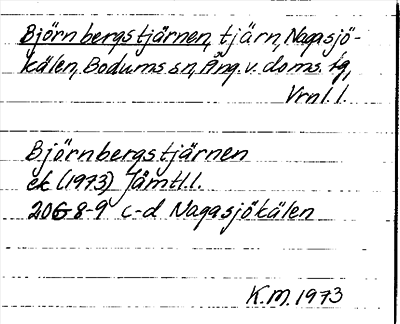 Björnbergstjärnen, tjärn, Nagasjö-
kälen, Bodums sn, Ång. v. doms. fg,
Vrnl. l.
Björnbergstjärnen
ek (1973) Jämtl. l.
20G 8-9 c-d Nagasjökälen
K.M. 1973